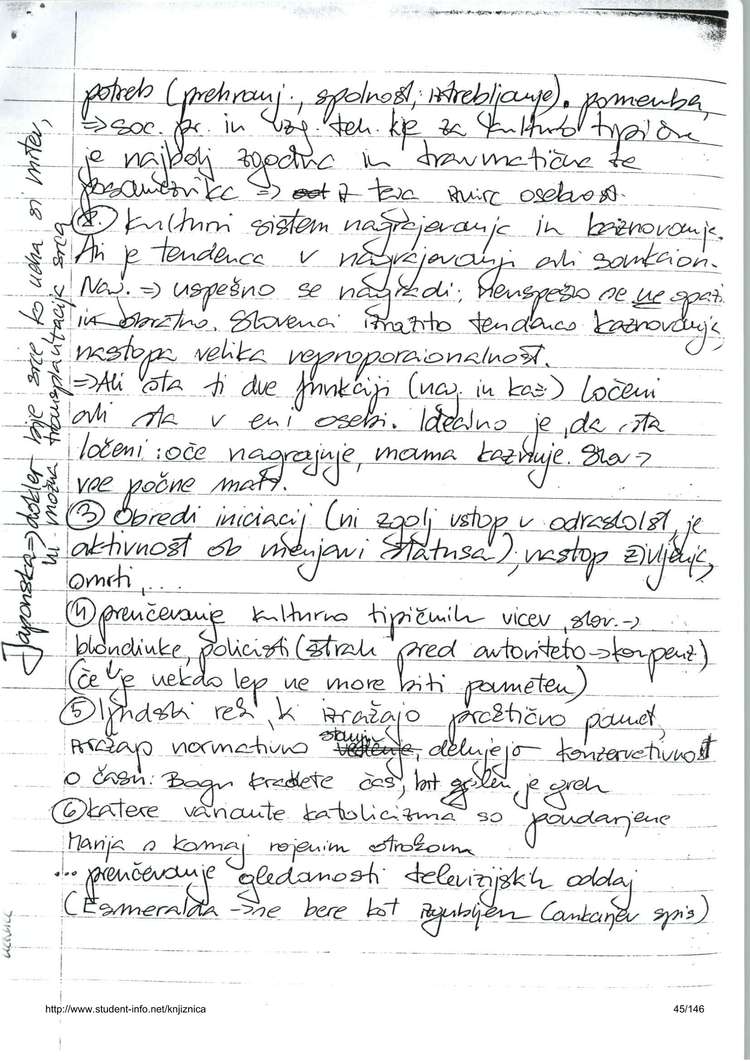 potreb (prehranj., spolnost, iztrebljanje). pomembna,
=> soc. pr. in vzg. teh. kje za kulturo tipične
je najbolj zgodna in travmatične te
posameznika => iz tega izvira osebnost.
② Kulturni sistem nagrajevanja in kaznovanja.
Ali je tendenca v nagrajevanji ali sankcion.
Nav. => uspešno se nagradi, neuspešno se ne opazi
in obratno. Slovenci izrazito tendenco kaznovanja,
nastopa velika neproporcionalnost.
=> Ali sta ti dve funkciji (nag. in kaz.) ločeni
ali sta v eni osebi. Idealno je, da sta
ločeni: oče nagrajuje, mama kaznuje. Slov ->
vse počne mati.
③ Obredi iniciacij (ni zgolj vstop v odraslost, je
aktivnost ob menjavi statusa), nastop življenja,
smrti,...
④ preučevanje kulturno tipičnih vicev, slov. ->
blondinke, policisti (strah pred avtoriteto -> kompenz.)
(če je nekdo lep ne more biti pameten)
⑤ ljudski reki, k izražajo praktično pamet,
izražajo normativno stanje, delujejo konzervativnost
o času: Bogu kradete čas, kot je greh
⑥ katere variante katolicizma so poudarjene
Marija s komaj rojenim otrokom
... preučevanje gledanosti televizijskih oddaj
(Esmeralda -> ne bere kot izgubljen (ankarjev spis)
Japonska => dokler bije srce ko nehа si mrtev,
ni možna transplantacija srca
http://www.student-info.net/knjiznica
45/146